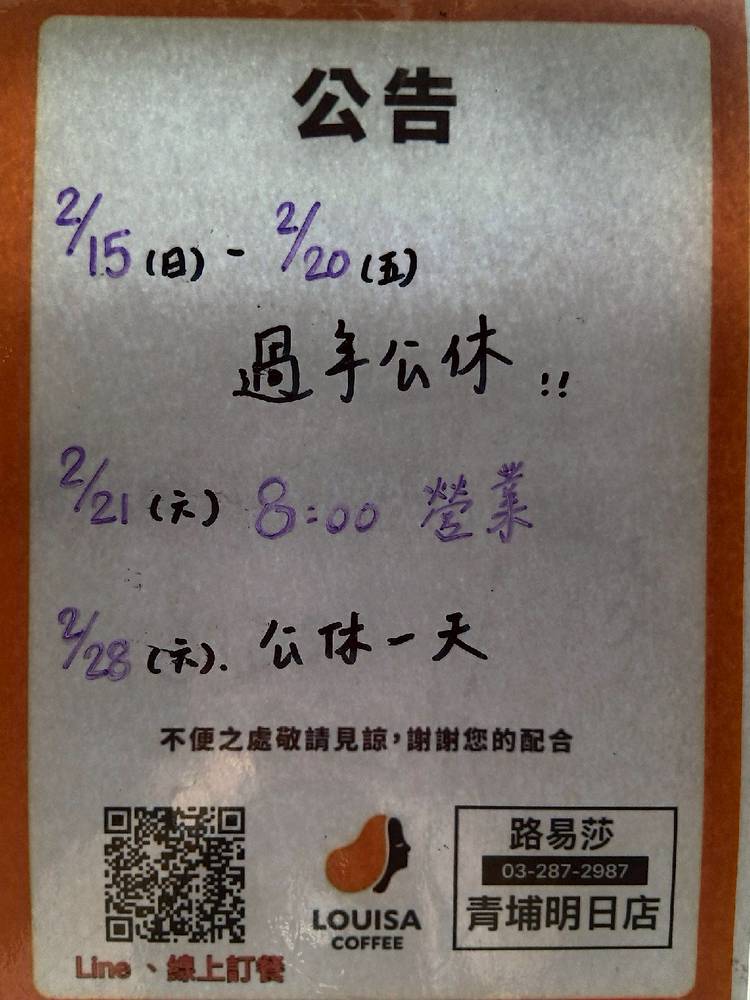 公告
2/15(日)-2/20(五)
過年公休!!
2/21(六) 8:00 營業
2/28(六). 公休一天
不便之處敬請見諒,謝謝您的配合
路易莎
03-287-2987
青埔明日店
LOUISA
COFFEE
Line、線上訂餐